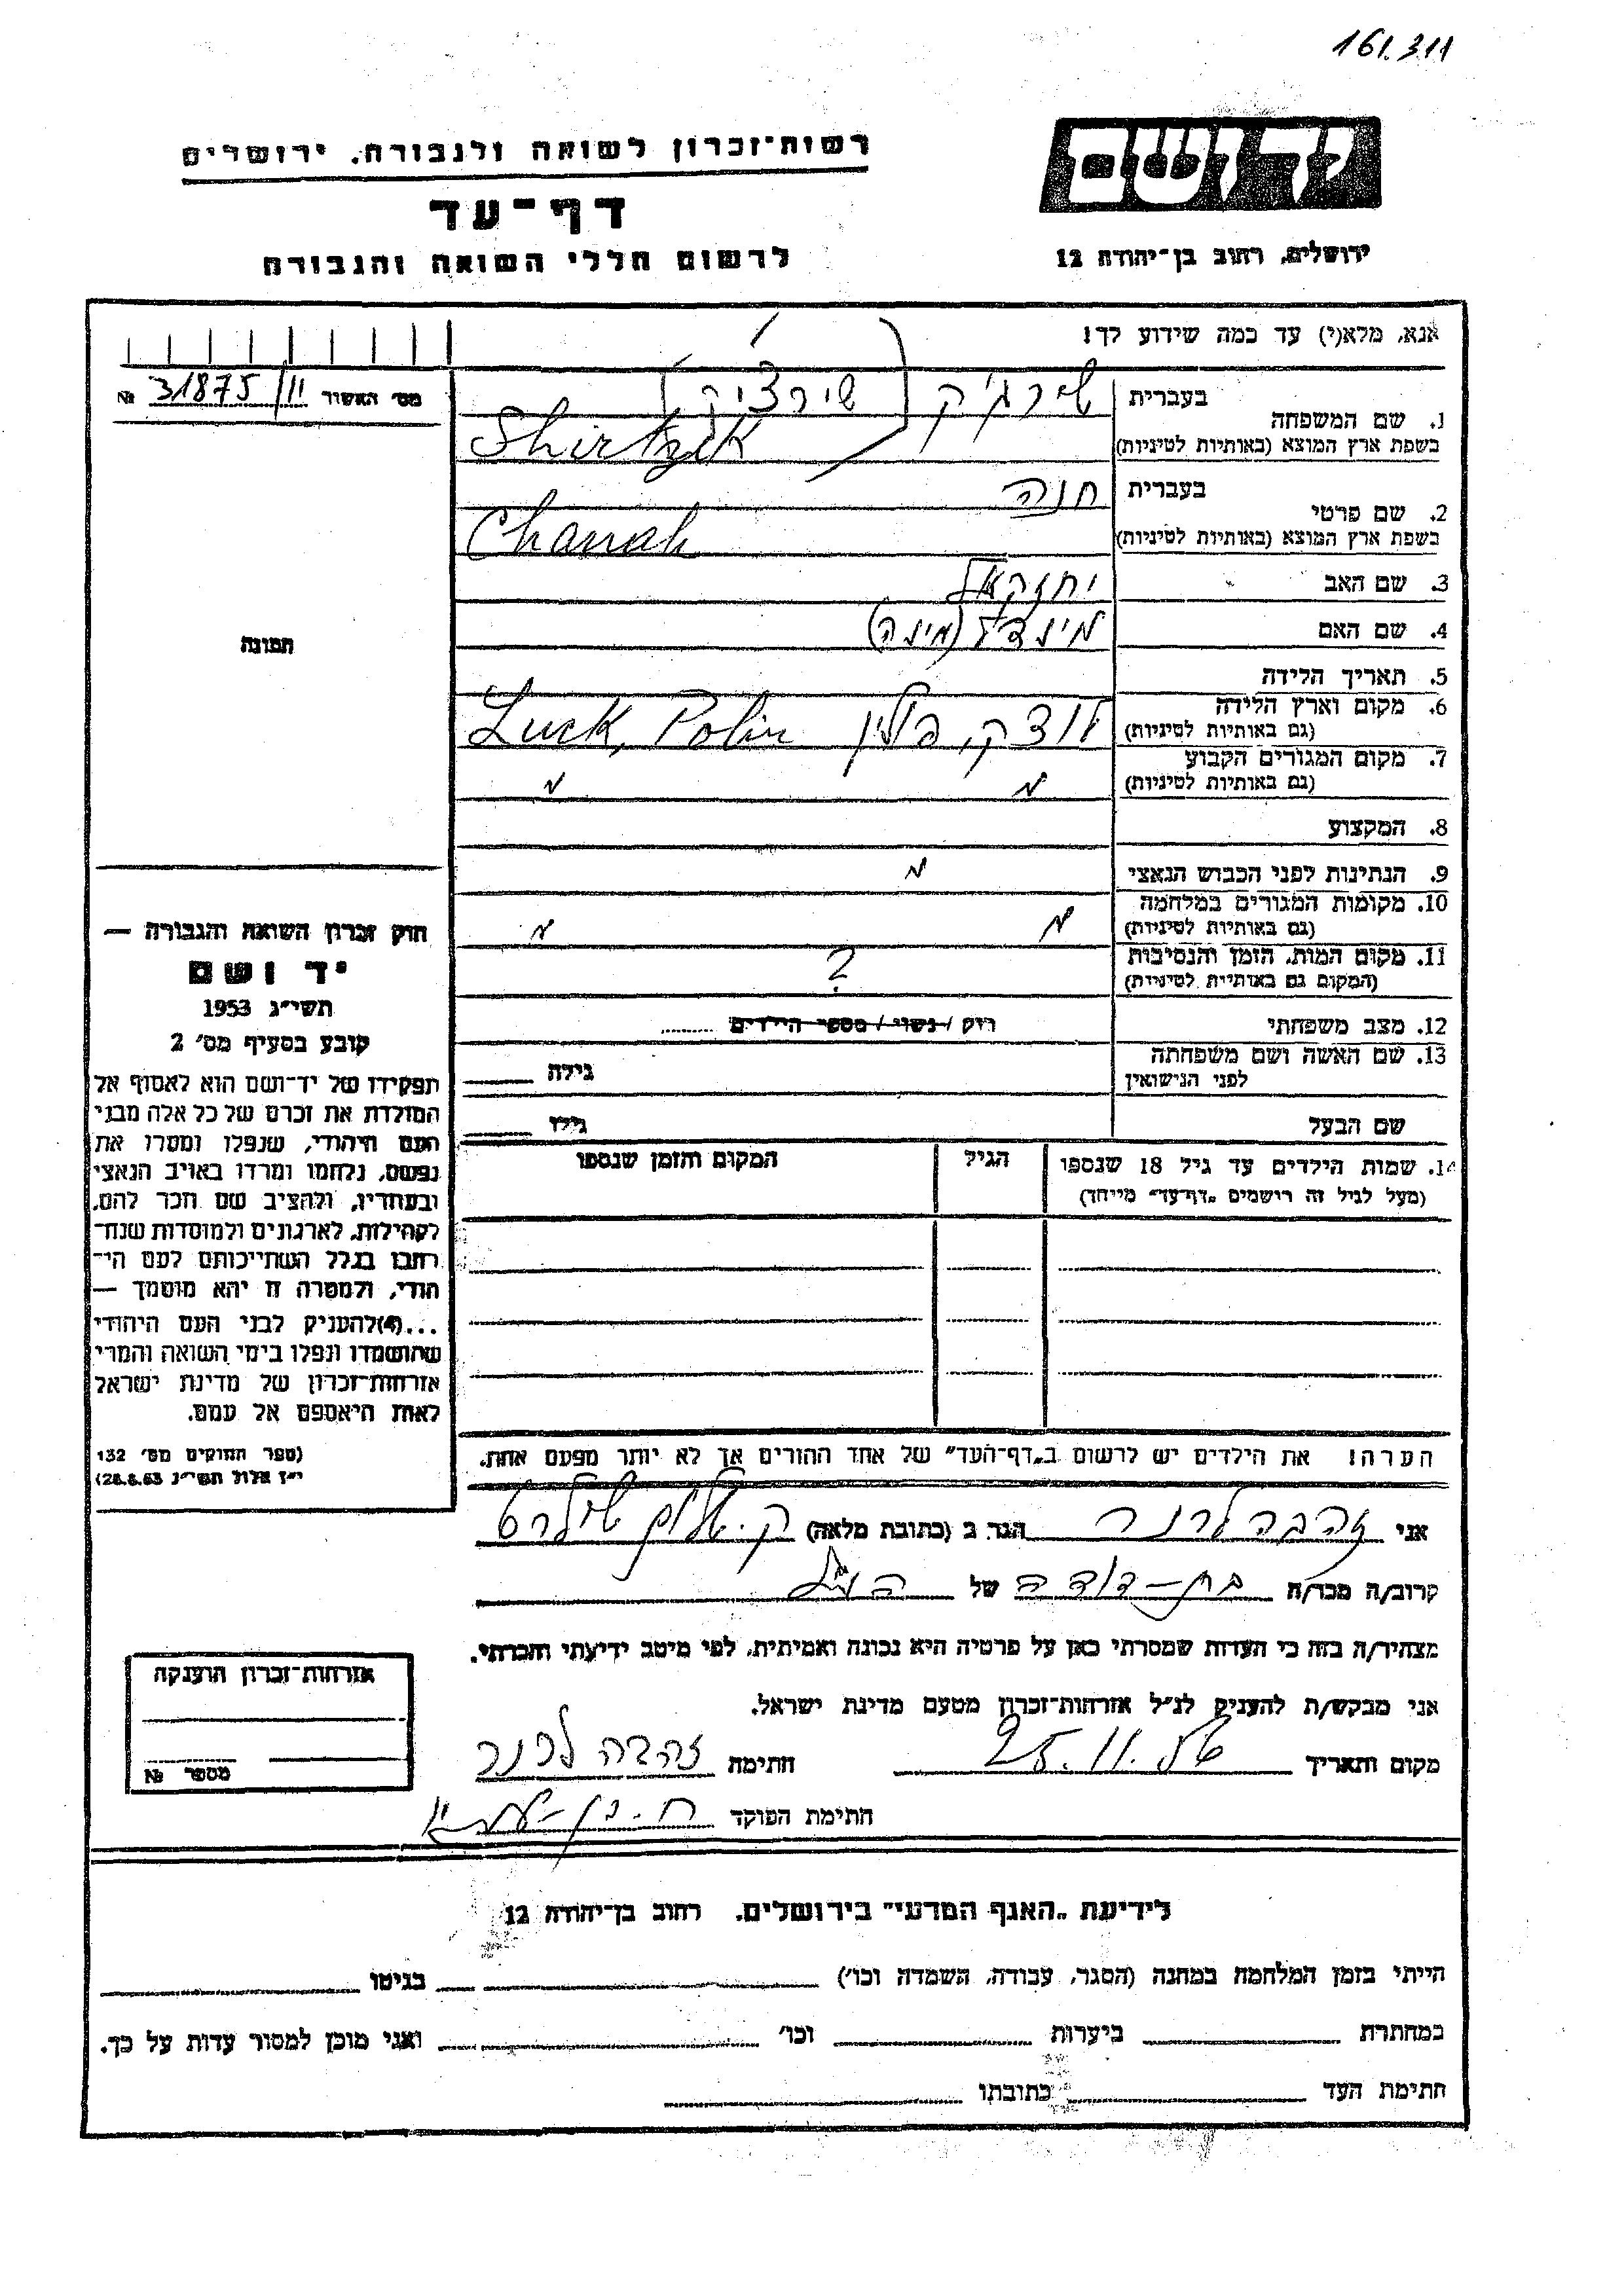 161.311
רשות־זכרון לשואה ולגבורה, ירושלים
דף־עד
לרשום חללי השואה והגבורה
יד ושם
ירושלים, רחוב בן־יהודה 12
אנא, מלא(י) עד כמה שידוע לך!
מס' האשור 31875/11 №
תמונה
1. שם המשפחה
בעברית שירג'יק (שירציק)
בשפת ארץ המוצא (באותיות לטיניות) Shirtzik
2. שם פרטי
בעברית חנה
בשפת ארץ המוצא (באותיות לטיניות) Chanah
3. שם האב יחזקאל
4. שם האם מינדל (מינה)
5. תאריך הלידה
6. מקום וארץ הלידה
(גם באותיות לטיניות) לוצק, פולין Luck, Polin
7. מקום המגורים הקבוע
(גם באותיות לטיניות) " "
8. המקצוע
9. הנתינות לפני הכבוש הנאצי "
10. מקומות המגורים במלחמה
(גם באותיות לטיניות) " "
11. מקום המות, הזמן והנסיבות
(המקום גם באותיות לטיניות) ?
12. מצב משפחתי רווק / נשוי / מספר הילדים
13. שם האשה ושם משפחתה
לפני הנישואין גילה
שם הבעל גילו
14. שמות הילדים עד גיל 18 שנספו הגיל המקום והזמן שנספו
(מעל לגיל זה רושמים „דף־עד" מיוחד)
חוק זכרון השואה והגבורה —
יד ושם
תשי"ג 1953
קובע בסעיף מס' 2
תפקידו של יד־ושם הוא לאסוף אל
המולדת את זכרם של כל אלה מבני
העם היהודי, שנפלו ומסרו את
נפשם, נלחמו ומרדו באויב הנאצי
ובעוזריו, ולהציב שם וזכר להם,
לקהילות, לארגונים ולמוסדות שנח־
רבו בגלל השתייכותם לעם הי־
הודי, ולמטרה זו יהא מוסמך —
...(4) להעניק לבני העם היהודי
שהושמדו ונפלו בימי השואה והמרי
אזרחות־זכרון של מדינת ישראל
לאות היאספם אל עמם.
(ספר החוקים מס' 132
י"ז אלול תשי"ג 28.8.53)
הערה! את הילדים יש לרשום ב„דף־העד" של אחד ההורים אך לא יותר מפעם אחת.
אני זהבה לרנר הגר ב (כתובת מלאה) ק. שלום
קרוב/ה מכר/ה בת-דודה של הנ"ל
מצהיר/ה בזה כי העדות שמסרתי כאן על פרטיה היא נכונה ואמיתית, לפי מיטב ידיעתי והכרתי.
אני מבקש/ת להעניק לנ"ל אזרחות־זכרון מטעם מדינת ישראל.
מקום ותאריך 25.11.56 חתימה זהבה לרנר
חתימת הפוקד
אזרחות־זכרון הוענקה
מספר №
לידיעת „האגף המדעי" בירושלים, רחוב בן־יהודה 12
הייתי בזמן המלחמה במחנה (הסגר, עבודה, השמדה וכו') בגיטו
במחתרת ביערות וכו' ואני מוכן למסור עדות על כך.
חתימת העד כתובתו